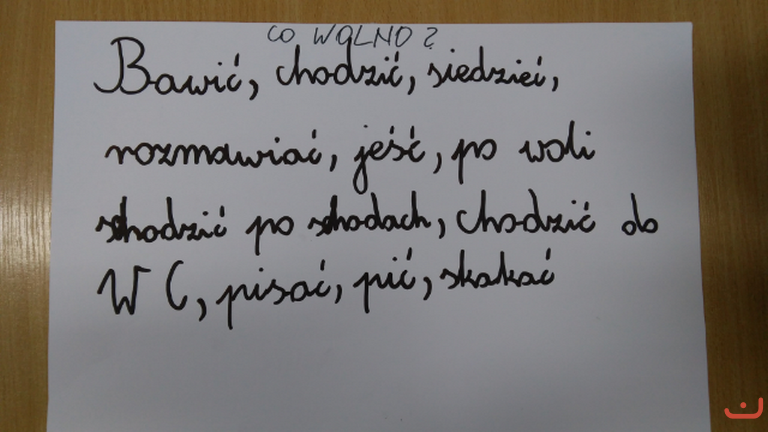 CO WOLNO?
Bawić, chodzić, siedzieć,
rozmawiać, jeść, po woli
schodzić po schodach, chodzić do
WC, pisać, pić, skakać